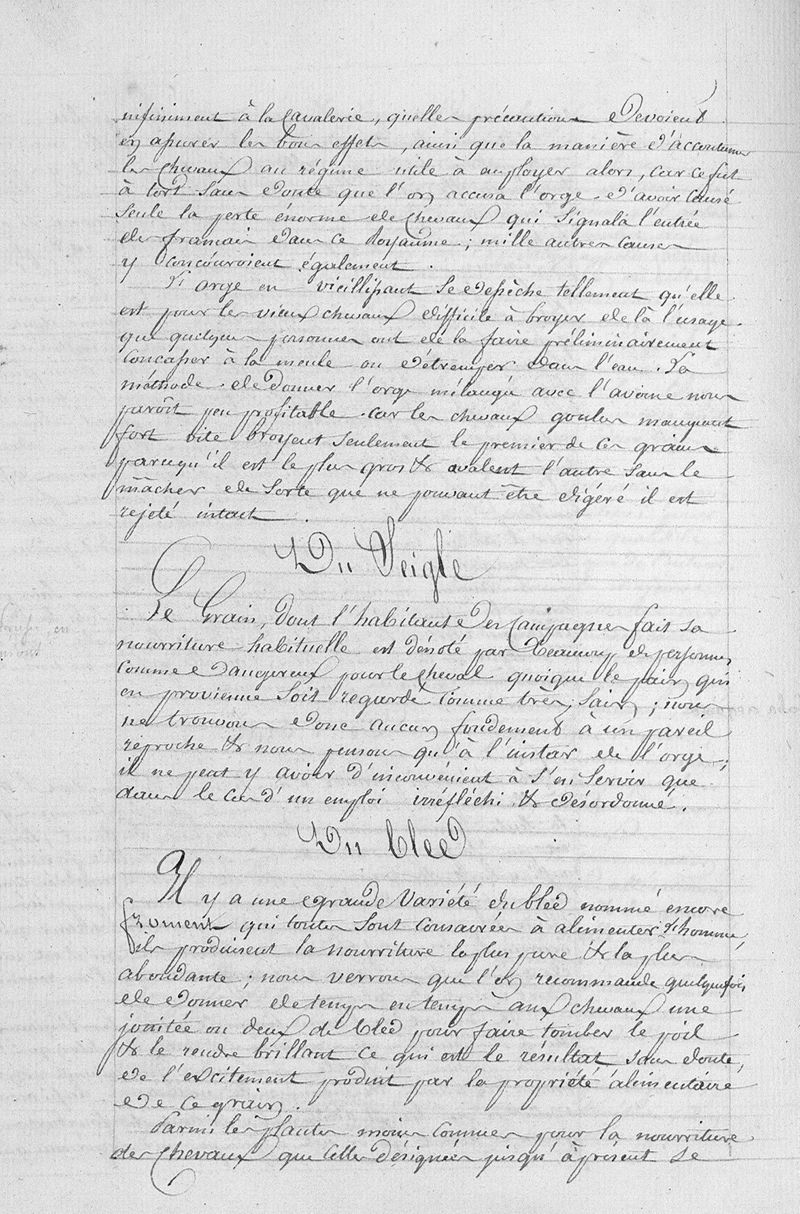 infiniment à la Cavalerie, quelles précautions devoient
en assurer les bons effets, ainsi que la manière d'accoutumer
les chevaux au régime utile à employer alors, car ce fut
à tort sans doute que l'on accusa l'orge d'avoir causé
seule la perte énorme de chevaux qui signala l'entrée
des français dans ce Royaume; mille autres causes
y concouroient également.
L'orge en vieillissant se dessèche tellement qu'elle
est pour les vieux chevaux difficile à broyer de là l'usage
que quelques personnes ont de la faire préliminairement
concasser à la meule ou détremper dans l'eau. La
méthode de donner l'orge mélangée avec l'avoine nous
paroît peu profitable car les chevaux goulus mangent
fort vite broyent seulement le premier de ces grains
parcequ'il est le plus gros & avalent l'autre sans le
mâcher de sorte que ne pouvant être digéré il est
rejeté intact.
Du Seigle
Ce Grain, dont l'habitant des Campagnes fait sa
nourriture habituelle est dénoté par beaucoup de personnes
comme dangereux pour le cheval quoique le pain qui
en provienne soit regardé comme très sain; nous
ne trouvons donc aucun fondement à un pareil
reproche & nous pensons qu'à l'instar de l'orge,
il ne peut y avoir d'inconvénient à s'en servir que
dans le cas d'un emploi irréfléchi & désordonné.
Du bled
Il y a une grande variété du bled nommé encore
froment qui toutes sont consacrées à alimenter l'homme,
ils produisent la nourriture la plus pure & la plus
abondante; nous verrons que l'on recommande quelquefois
de donner de tems en tems aux chevaux une
jointée ou deux de bled pour faire tomber le poil
& le rendre brillant ce qui est le résultat sans doute,
de l'excitement produit par la propriété alimentaire
de ce grain.
Parmi les plantes moins connues pour la nourriture
des chevaux que celles désignées jusqu'à présent se